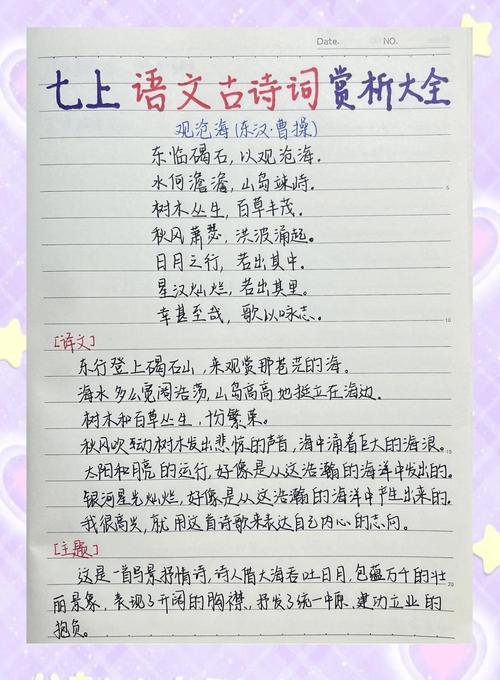 Date. NO.
七上语文古诗词赏析大全
观沧海(东汉·曹操)
东临碣石,以观沧海.
水何澹澹,山岛竦峙.
5
树木丛生,百草丰茂.
秋风萧瑟,洪波涌起。
日月之行,若出其中.
星汉灿烂,若出其里.
幸甚至哉,歌以咏志.
10
[译文]
东行登上碣石山,来观赏那苍茫的海。
海水多么宽阔浩荡,山岛高高地挺立在海边.
树木和百草丛生,十份繁荣。
秋风吹动树木发出悲惊的声音,海中涌着巨大的海浪。
15
太阳和月亮的运行,好像是从这浩瀚的海洋中发出的。
银河星光灿烂,好像是从这浩瀚的海洋中产生出来的.
我很高兴,就用这首诗歌来表达自己内心的志向。
[主题]
这是一首写景抒情诗,诗人借大海吞吐日月,包蕴万千的壮
20
丽景象,表现了开阔的胸襟,抒发了统一中原、建功立业的
抱负。